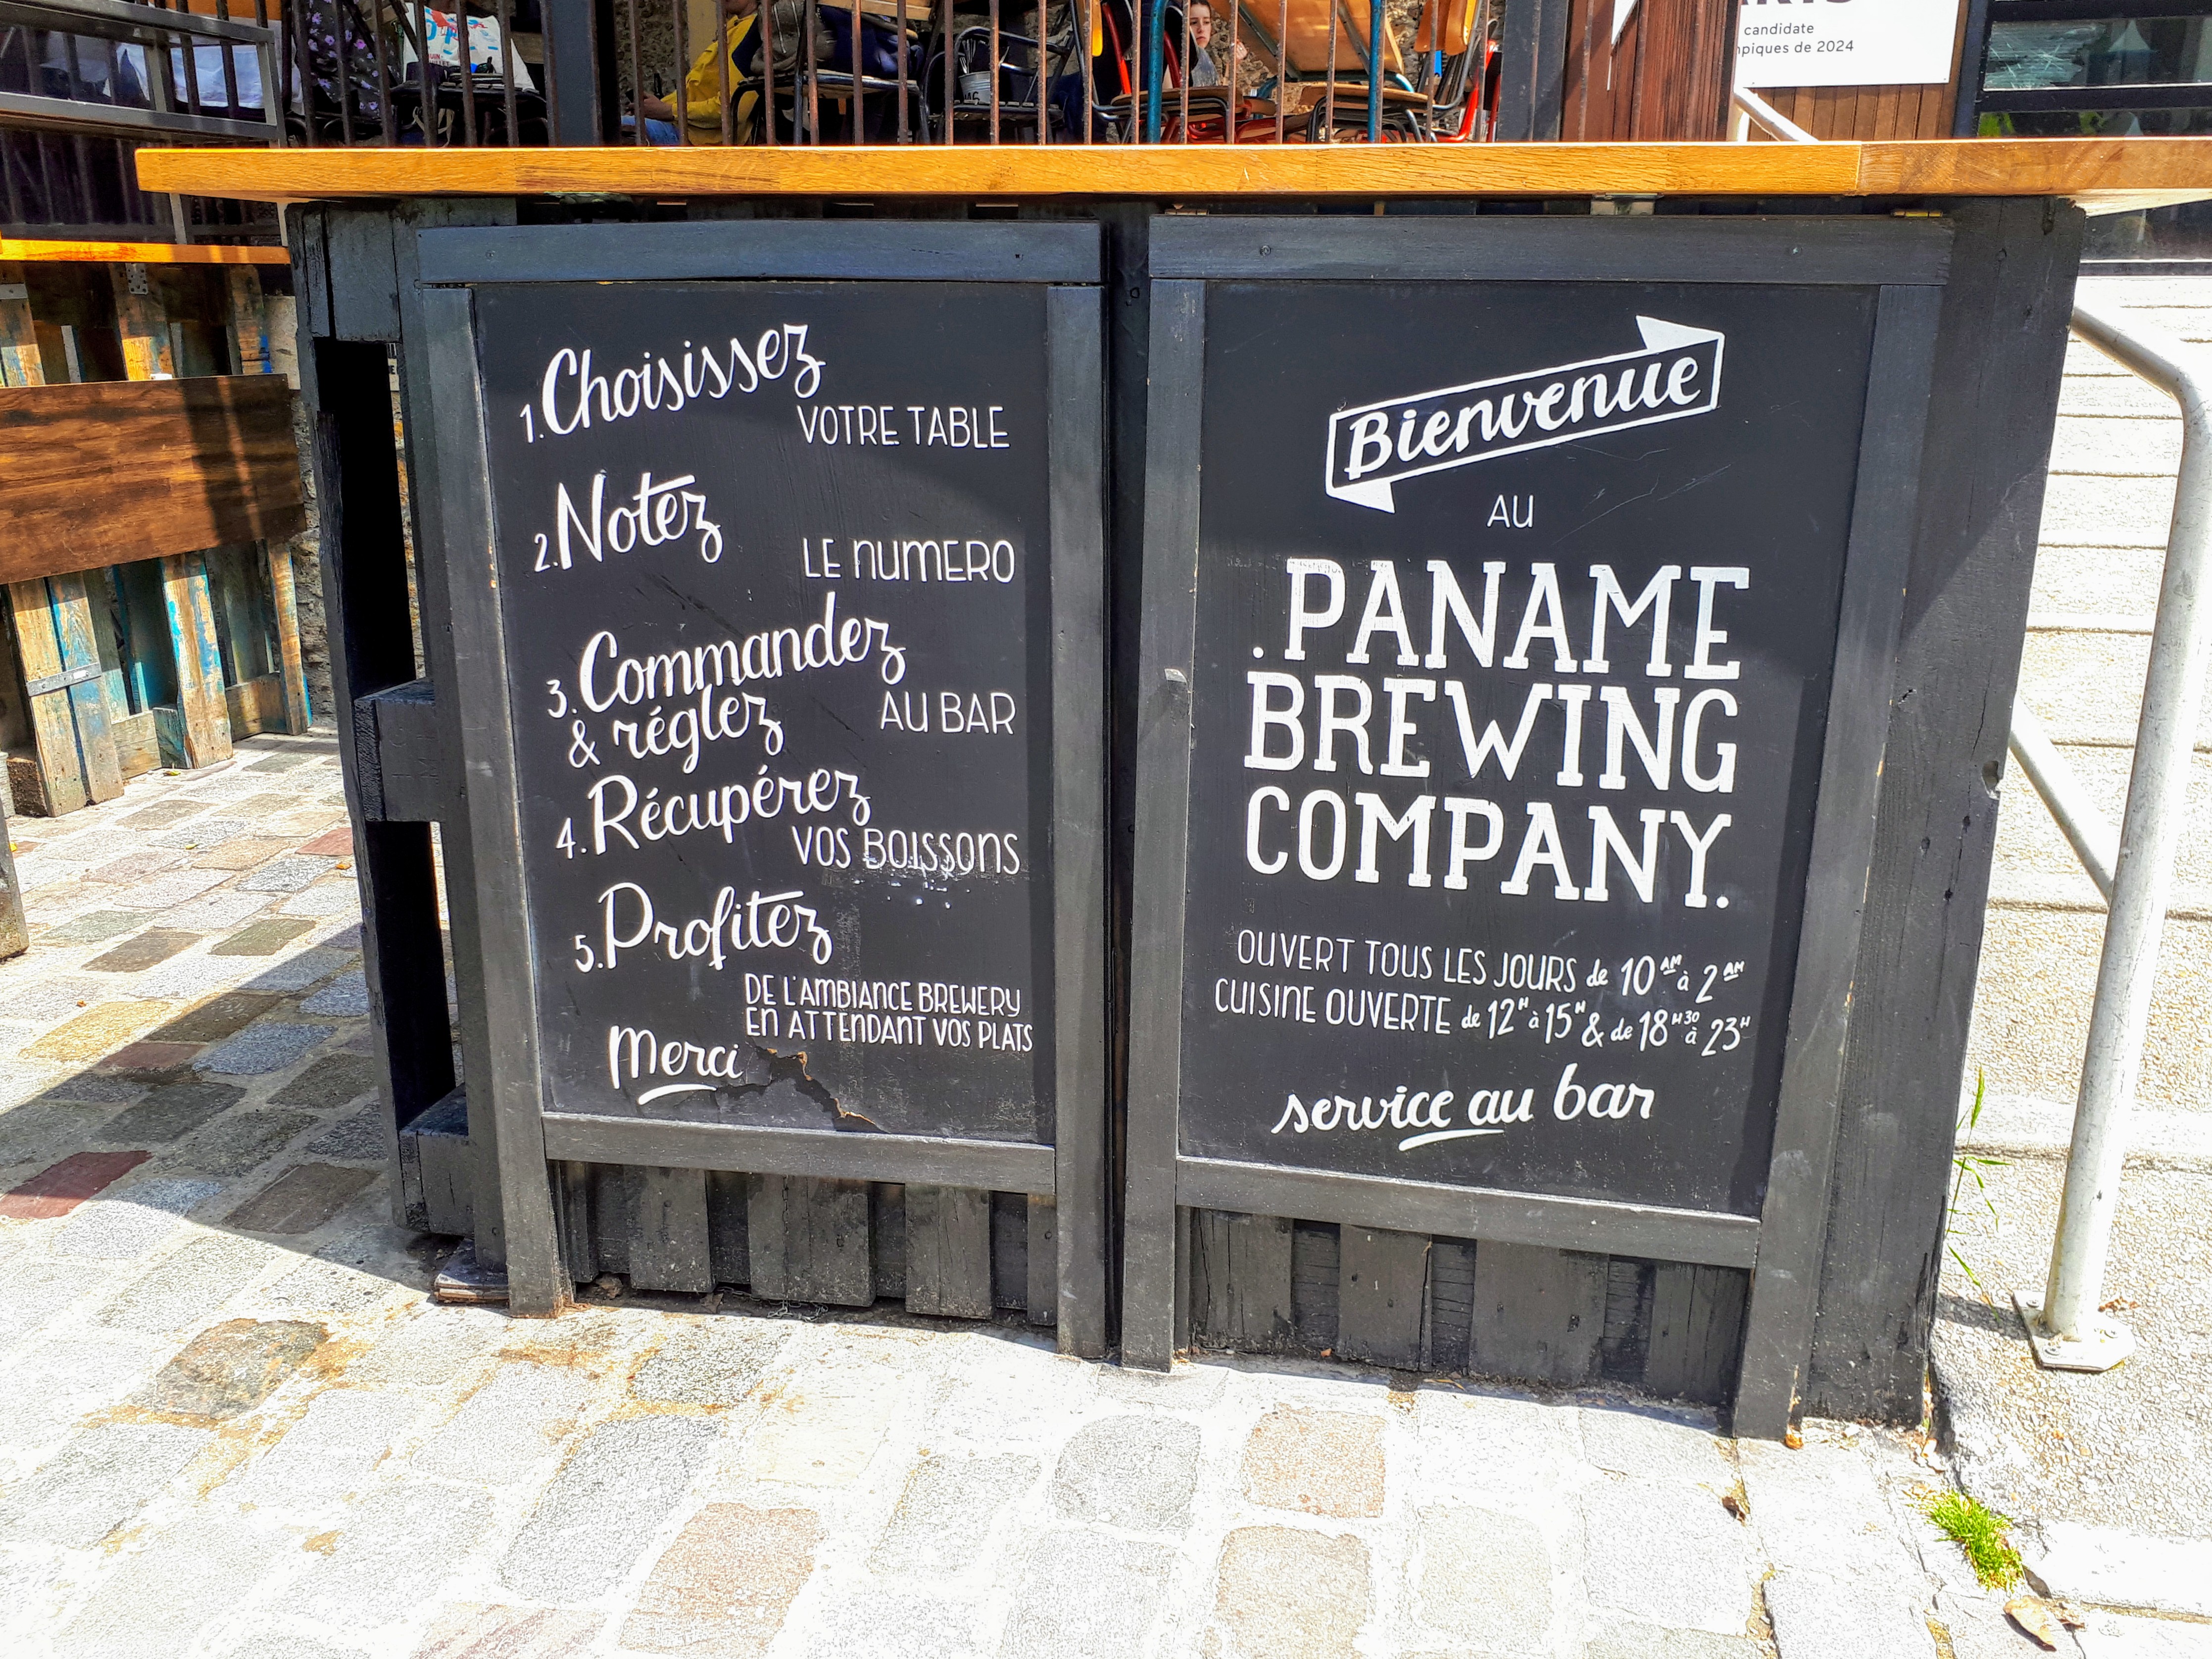 candidate
mpiques de 2024
1. Choisissez
VOTRE TABLE
2. Notez
LE NUMERO
3. Commandez
& réglez
AU BAR
4. Récupérez
VOS BOISSONS
5. Profitez
DE L'AMBIANCE BREWERY
EN ATTENDANT VOS PLATS
Merci
Bienvenue
AU
.PANAME
BREWING
COMPANY.
OUVERT TOUS LES JOURS de 10AM à 2AM
CUISINE OUVERTE de 12H à 15H & de 18H30 à 23H
service au bar